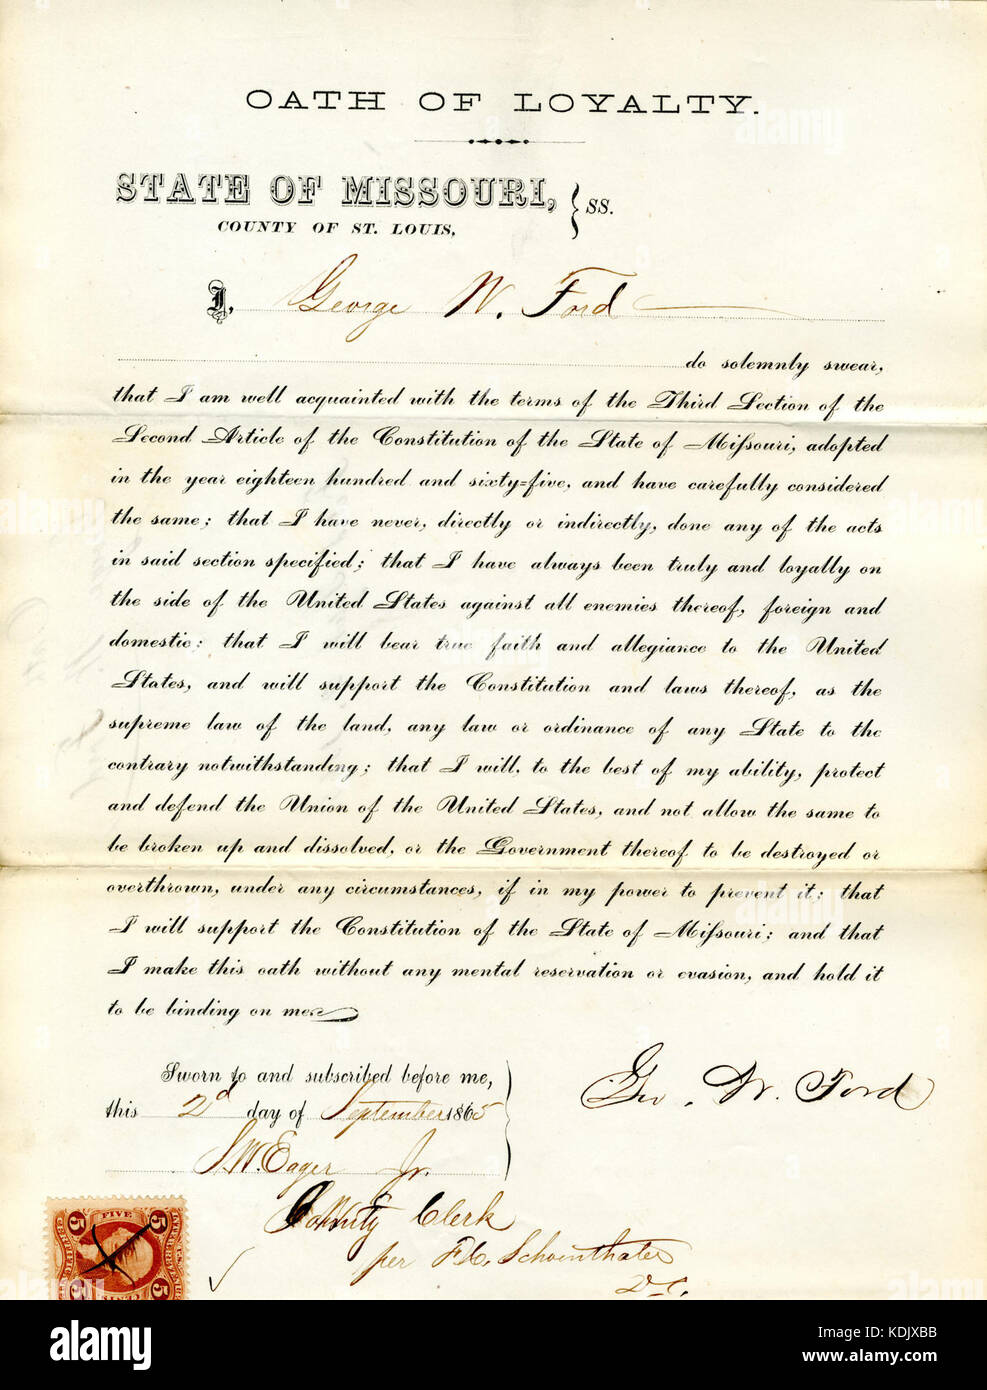 OATH OF LOYALTY.
STATE OF MISSOURI, } SS.
COUNTY OF ST. LOUIS,
I, George W. Ford
do solemnly swear,
that I am well acquainted with the terms of the Third Section of the
Second Article of the Constitution of the State of Miſsouri, adopted
in the year eighteen hundred and sixty=five, and have carefully considered
the same; that I have never, directly or indirectly, done any of the acts
in said section specified; that I have always been truly and loyally on
the side of the United States against all enemies thereof, foreign and
domestic: that I will bear true faith and allegiance to the United
States, and will support the Constitution and laws thereof, as the
supreme law of the land, any law or ordinance of any State to the
contrary notwithstanding; that I will, to the best of my ability, protect
and defend the Union of the United States, and not allow the same to
be broken up and dissolved, or the Government thereof to be destroyed or
overthrown, under any circumstances, if in my power to prevent it; that
I will support the Constitution of the State of Miſsouri; and that
I make this oath without any mental reservation or evasion, and hold it
to be binding on me.
Sworn to and subscribed before me,
this 2d day of September 1865
Geo. W. Ford
S.W. Eager Jr.
County Clerk
per F.C. Schoenthaler
D.C.
FIVE
5 5
5 5
CENTS
alamy
Image ID: KDJXBB
www.alamy.com